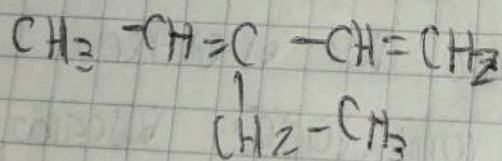 CH3-CH=C-CH=CH2
|
CH2-CH3